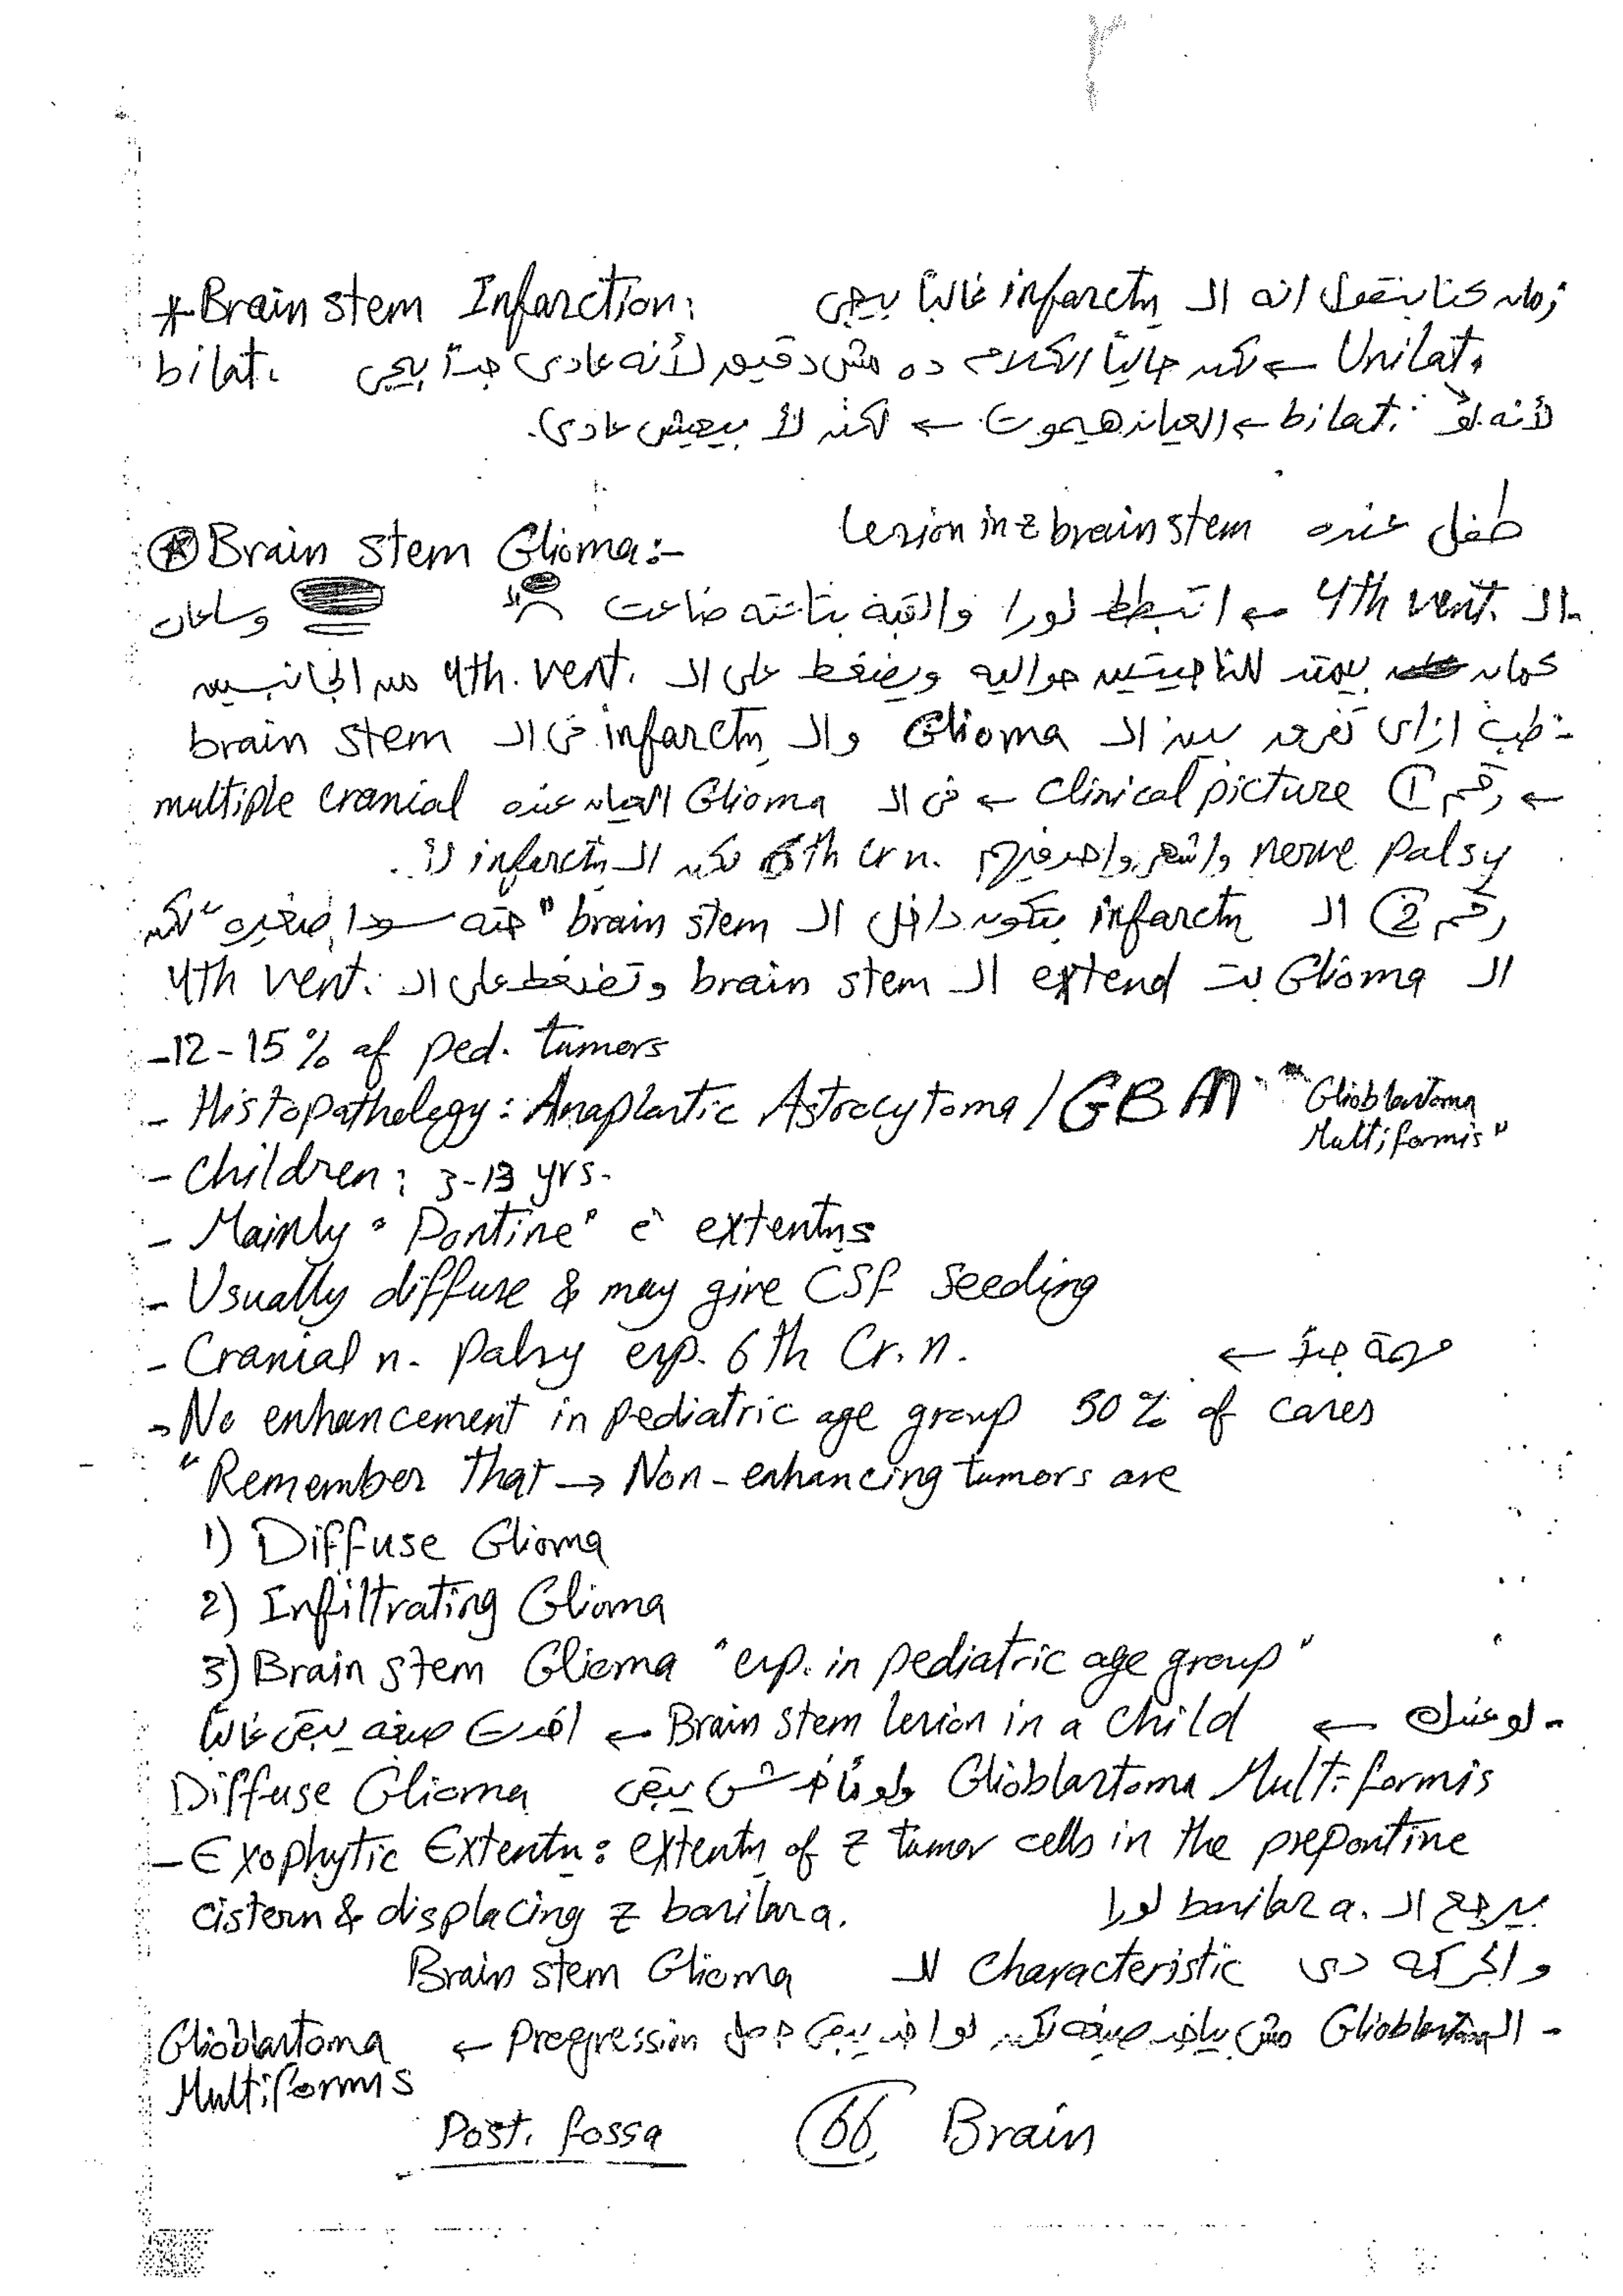 * Brain stem Infarction: زمان كنا بنقول انه الـ infarctn غالباً بيجى
Unilat. ← لكن حالياً الكلام ده مش دقيق لأنه عادى جداً يجى bilat.
لأنه لو bilat. ← العيان هيموت ← لكنه لأ بيعيش عادى.
⊛ Brain stem Glioma:- طفل عنده lesion in z brain stem
- الـ 4th vent. ← اتبطط لورا والقبة بتاعته ضاعت وساعات
كمان يمتد للناحيتين حواليه ويضغط على الـ 4th. vent. من الجانبين
- طب ازاى تفرق بين الـ Glioma والـ infarctn فى الـ brain stem
← رقم ① clinical picture ← فى الـ Glioma العيان عنده multiple cranial
nerve palsy واشهر واحد فيهم 6th cr n. لكن الـ infarctn لأ.
رقم ② الـ infarctn بتكون داخل الـ brain stem "حته سودا صغيره" لكن
الـ Glioma بت extend الـ brain stem وتضغط على الـ 4th vent.
- 12-15% of ped. tumors
- Histopathology: Anaplastic Astrocytoma / GBM "Glioblastoma
Multiformis"
- Children: 3-13 yrs.
- Mainly "Pontine" c̄ extentns
- Usually diffuse & may give CSF seeding
- Cranial n. palsy esp. 6th Cr. n. ← مهمة جداً
- No enhancement in pediatric age group 50% of cases
"Remember that → Non-enhancing tumors are
1) Diffuse Glioma
2) Infiltrating Glioma
3) Brain stem Glioma "esp. in pediatric age group"
- لو عندك ← Brain stem lesion in a child ← اخدت صبغه يبقى غالباً
Glioblastoma Multiformis ولو ماخدتش يبقى Diffuse Glioma
- Exophytic Extentn: extentn of z tumor cells in the prepontine
cistern & displacing z basilar a. بيرجع الـ basilar a. لورا
والحركه دى Characteristic للـ Brain stem Glioma
- الـ Glioblastoma مش بياخد صبغه لكن لو اخد يبقى حصل Progression ← Glioblastoma
Multiformis
Post. fossa 66 Brain